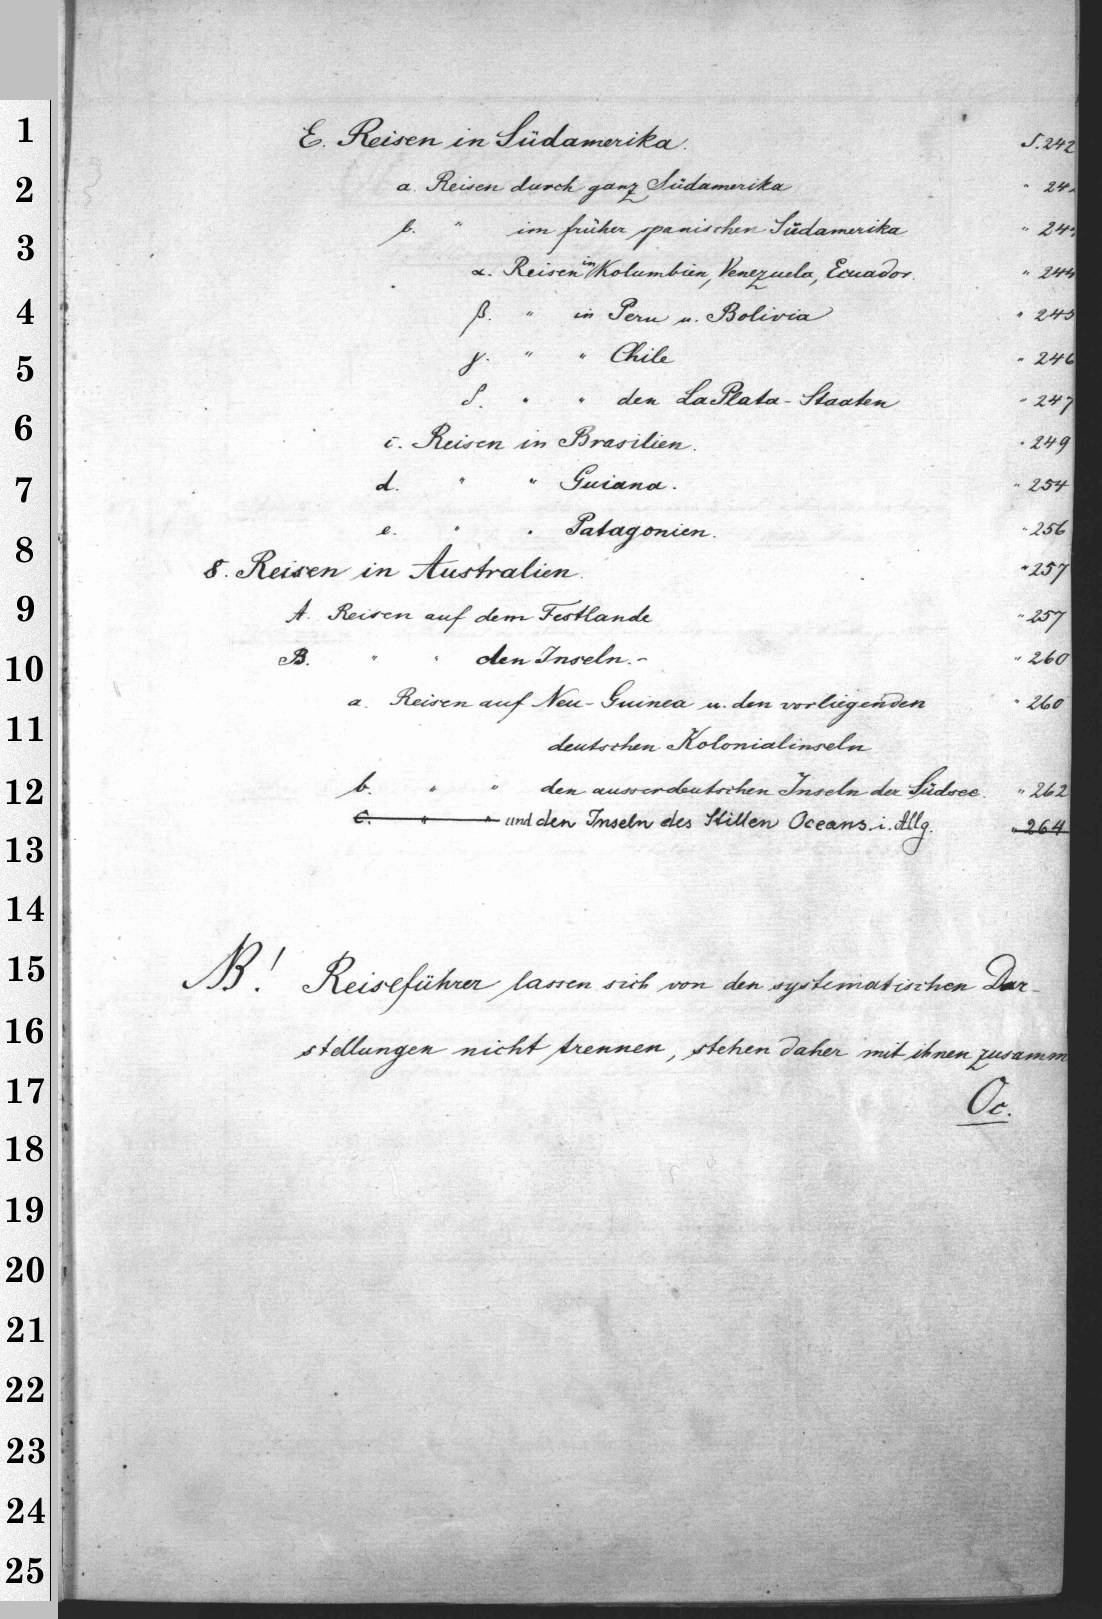 E. Reisen in Südamerika. S. 242
a. Reisen durch ganz Südamerika " 24
b. " im früher spanischen Südamerika " 24
α. Reisen in Kolumbien, Venezuela, Ecuador. " 244
β. " in Peru u. Bolivia " 245
γ. " " Chile " 246
δ. " " den La Plata-Staaten " 247
c. Reisen in Brasilien. " 249
d. " " Guiana. " 254
e. " " Patagonien. " 256
8. Reisen in Australien. " 257
A. Reisen auf dem Festlande " 257
B. " " den Inseln.- " 260
a. Reisen auf Neu-Guinea u. den vorliegenden " 260
deutschen Kolonialinseln
b. " " den ausserdeutschen Inseln der Südsee. " 262
c. " " und den Inseln des Stillen Oceans i. Allg. " 264
NB! Reiseführer lassen sich von den systematischen Dar-
stellungen nicht trennen, stehen daher mit ihnen zusamm
Oc.
1
2
3
4
5
6
7
8
9
10
11
12
13
14
15
16
17
18
19
20
21
22
23
24
25